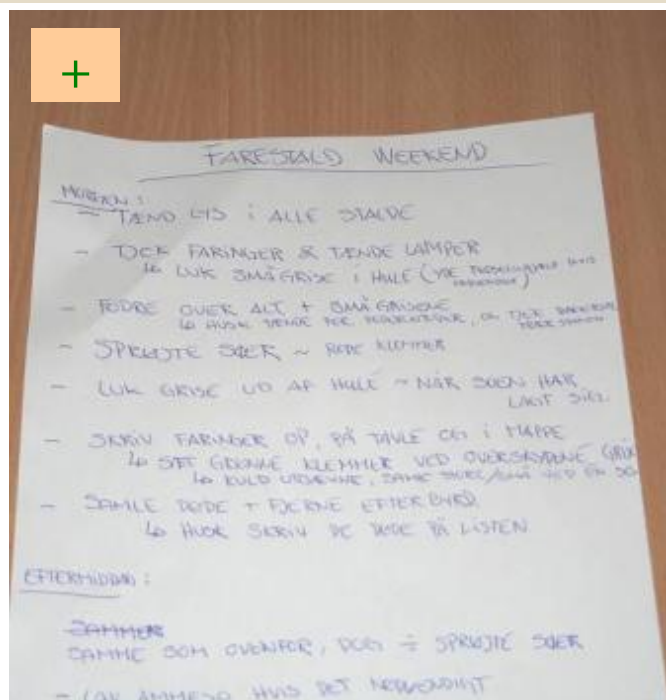 +
FARESTALD WEEKEND
MORGEN:
- TÆND LYS i ALLE STALDE
- TJCK FARINGER & TÆNDE LAMPER
↳ LUK SMÅGRISE i HULE (
- FODRE OVER ALT + SMÅGRISENE
↳ HUSK, OG TJCK
- SPRØJTE SØER ~ RØDE KLEMMER
- LUK GRISE UD AF HULE ~ NÅR SOEN HAR
LAGT SIG.
- SKRIV FARINGER OP, PÅ TAVLE OG i MAPPE
↳ SÆT GRØNNE KLEMMER VED OVERSKYDENE
↳ KULD UDJÆVNE, VED ÉN SO
- SAMLE DØDE + FJERNE EFTERBYRD.
↳ HUSK SKRIV DE DØDE PÅ LISTEN
EFTERMIDDAG:
SAMME SOM OVENFOR, DOG ÷ SPRØJTE SØER
- LAV AMMESO HVIS DET NØDVENDIGT